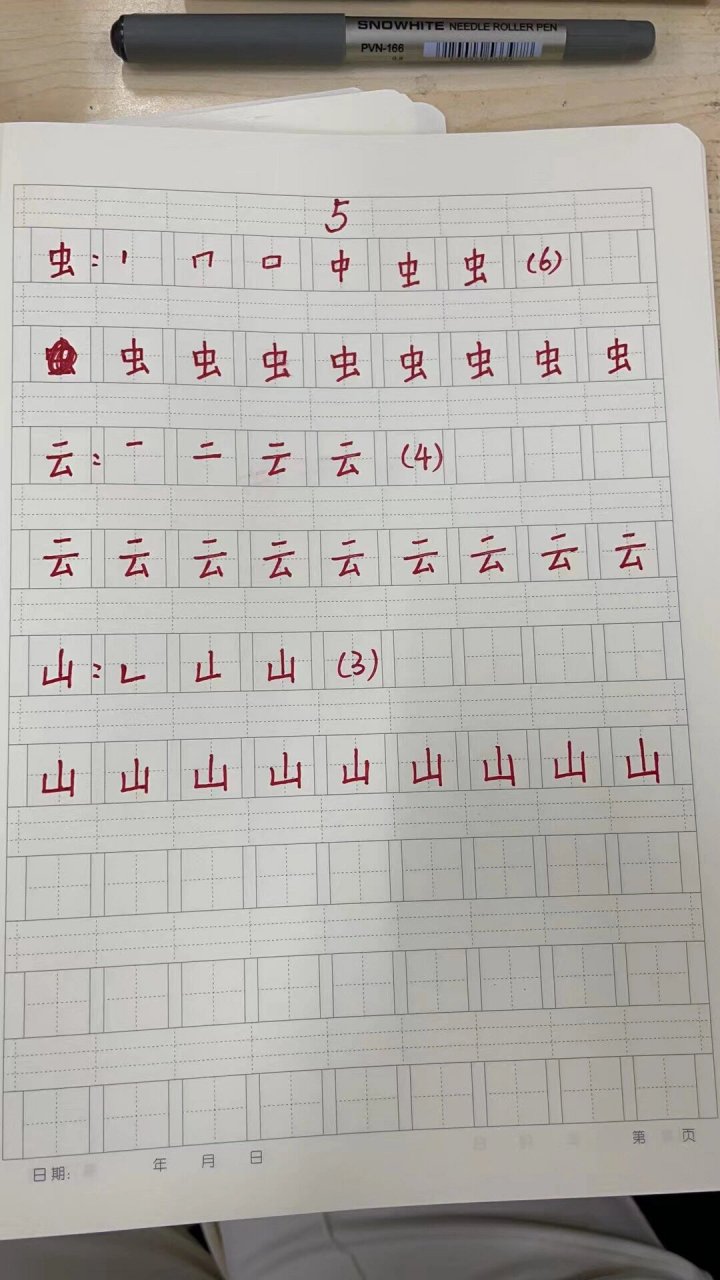 SNOWHITE NEEDLE ROLLER PEN
PVN-166
5
虫: 丨 冂 口 中 虫 虫 (6)
虫 虫 虫 虫 虫 虫 虫 虫
云: 一 二 云 云 (4)
云 云 云 云 云 云 云 云 云
山: ㄴ 山 山 (3)
山 山 山 山 山 山 山 山 山
日期: 年 月 日 第 页